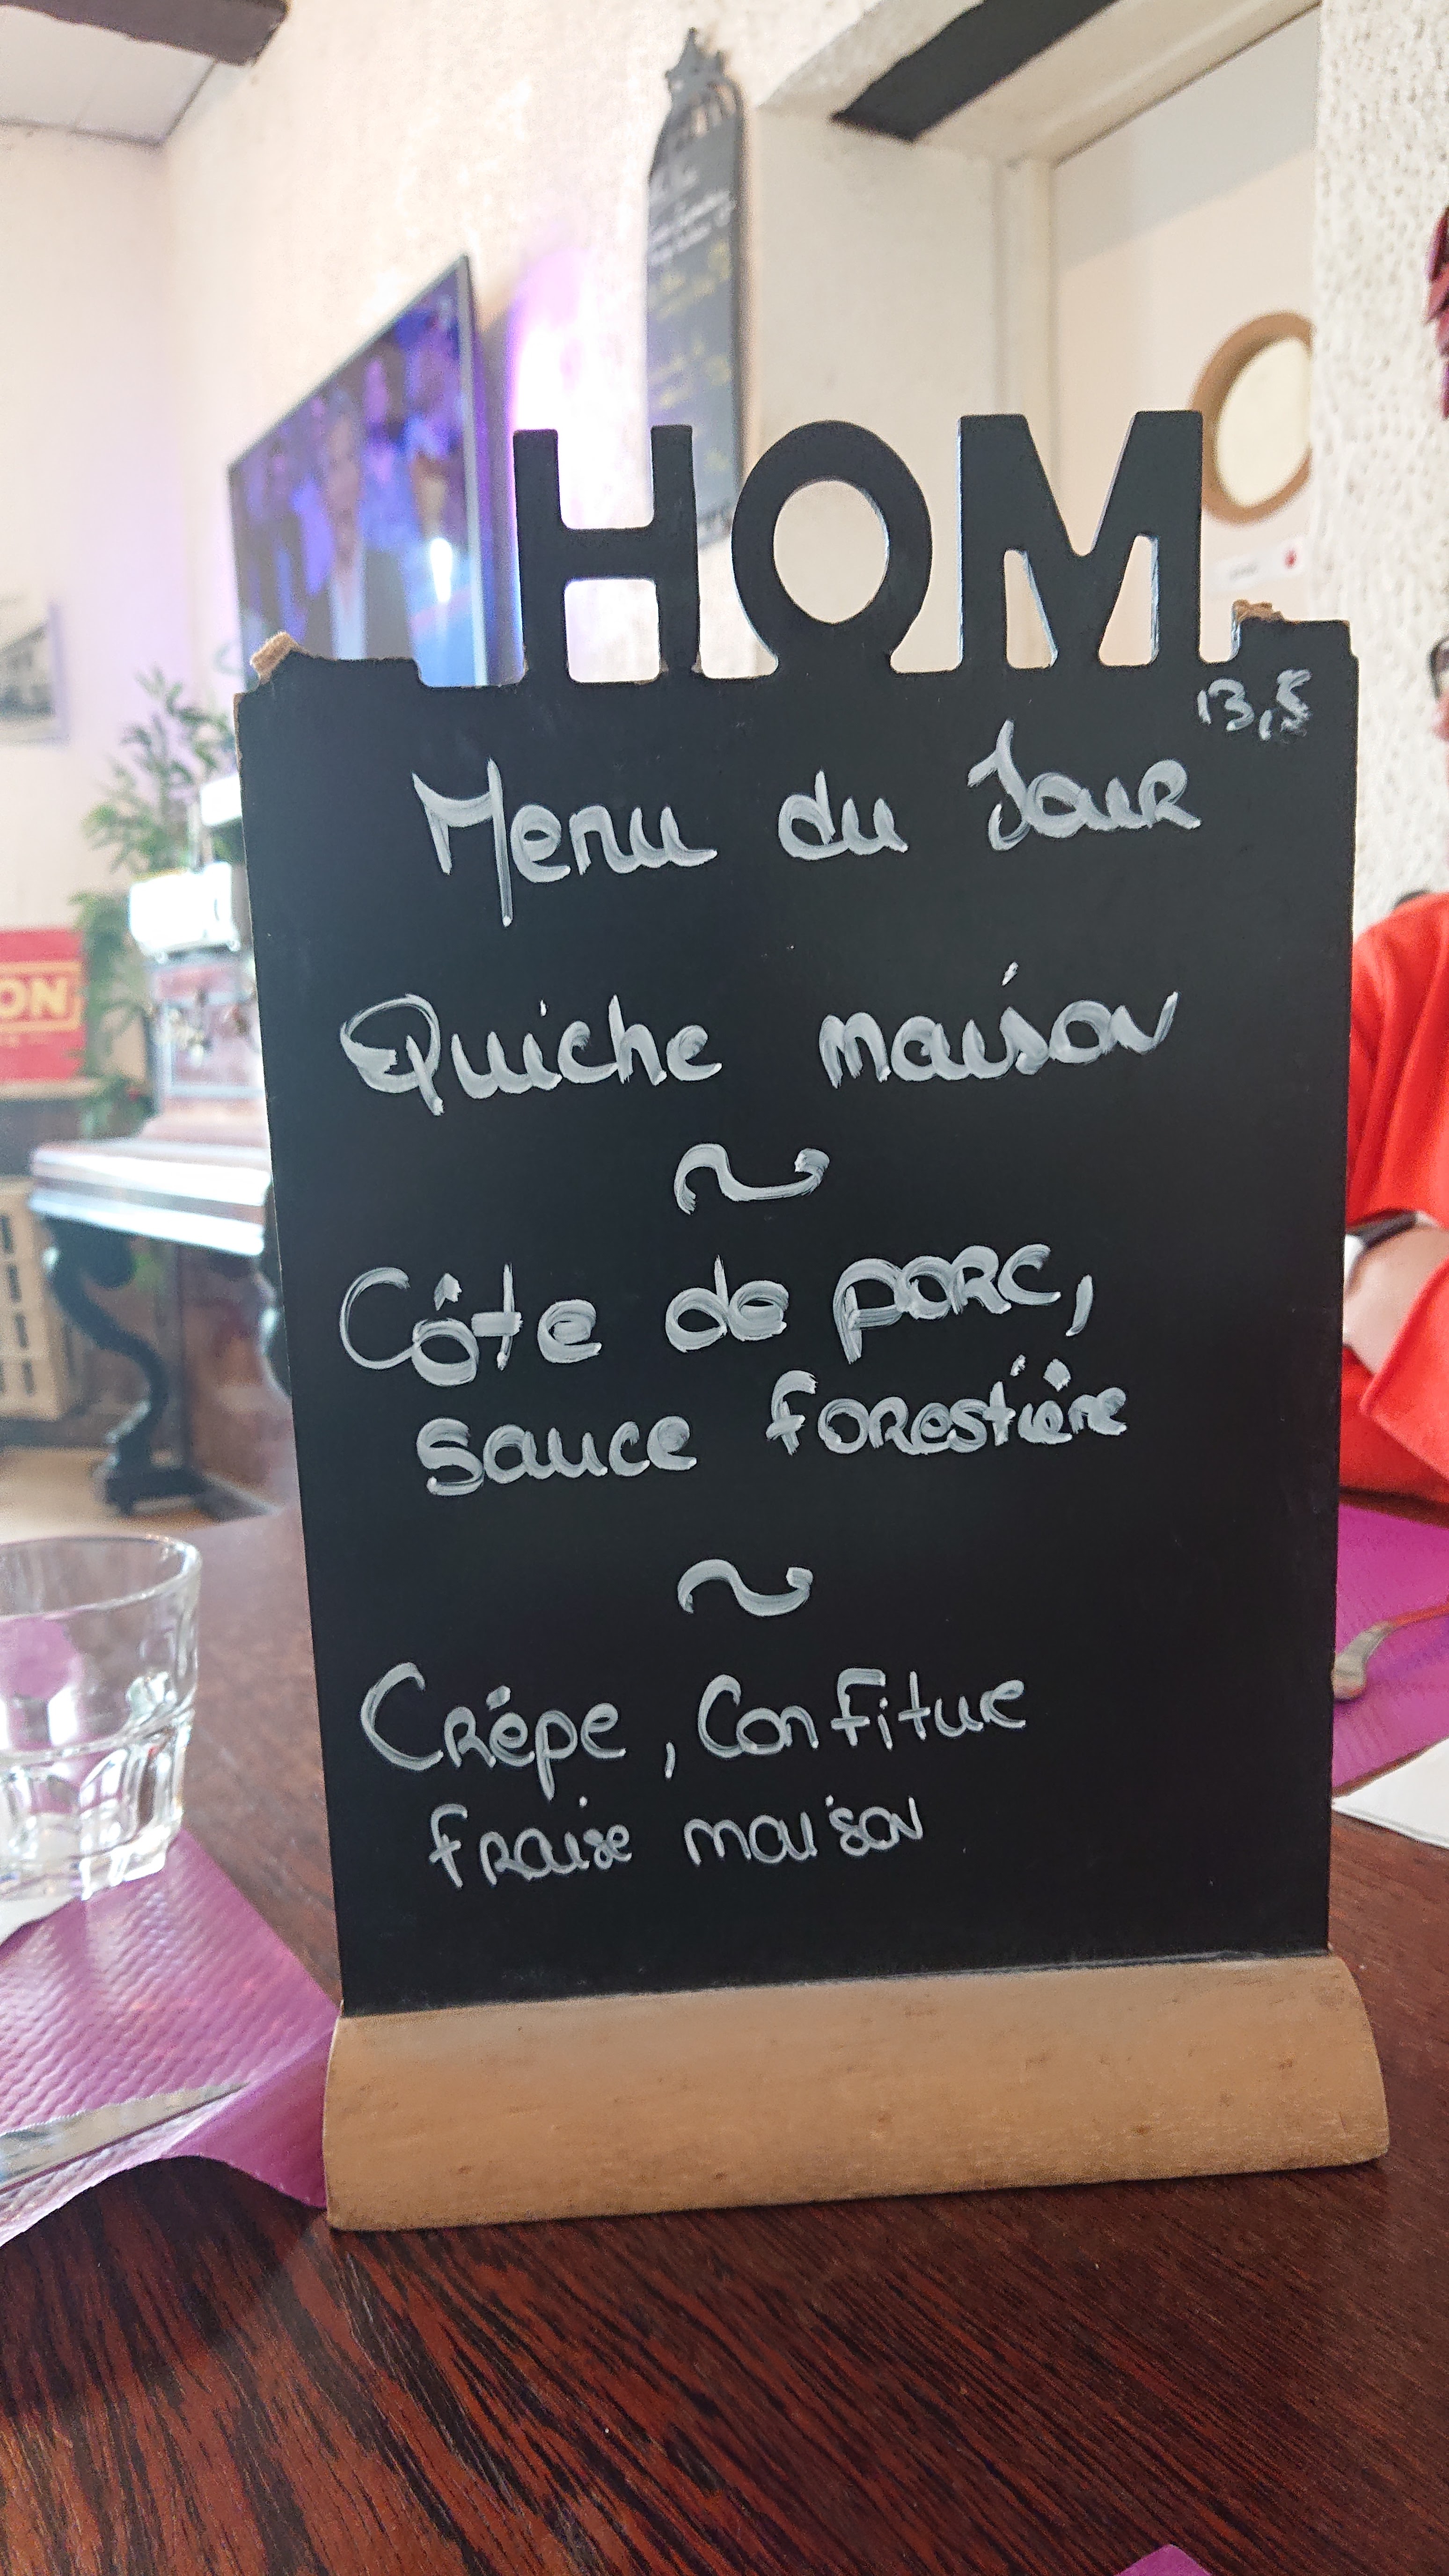 HOM
13,5
Menu du Jour
Quiche maison
~
Côte de porc,
sauce forestière
~
Crêpe, Confiture
fraise maison
ON